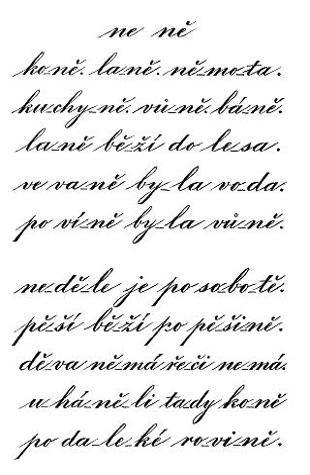 ne ně
ko-ně. la-ně. ně-mo-ta.
ku-chy-ně. vů-ně. bá-ně.
la-ně bě-ží do le-sa.
ve va-ně by-la vo-da.
po ví-ně by-la vů-ně.
ne-dě-le je po so-bo-tě.
pě-ší bě-ží po pě-ši-ně.
dě-va ně-má ře-či ne-má.
u-há-ně-li ta-dy ko-ně
po da-le-ké ro-vi-ně.